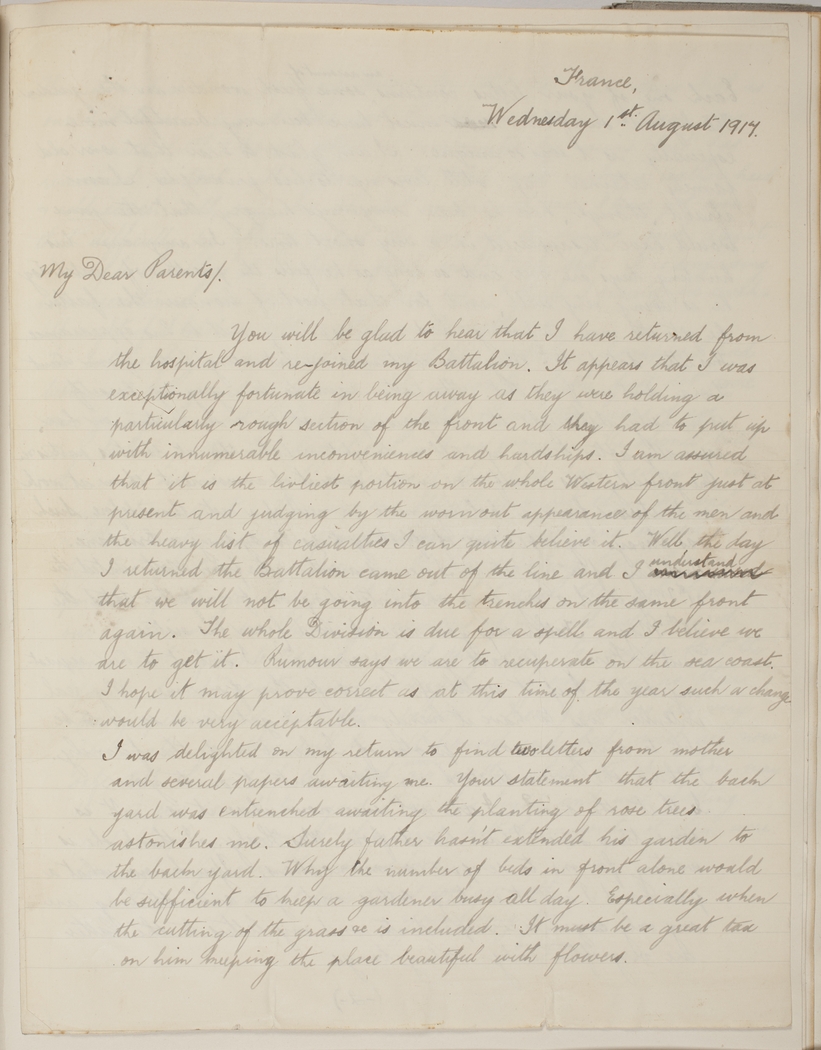 France,
Wednesday 1st. August 1917.
My Dear Parents/.
You will be glad to hear that I have returned from
the hospital and re-joined my Battalion. It appears that I was
exceptionally fortunate in being away as they were holding a
particularly rough section of the front and they had to put up
with innumerable inconveniences and hardships. I am assured
that it is the livliest portion on the whole Western front just at
present and judging by the worn out appearance of the men and
the heavy list of casualties I can quite believe it. Well the day
I returned the Battalion came out of the line and I understand
that we will not be going into the trenches on the same front
again. The whole Division is due for a spell and I believe we
are to get it. Rumour says we are to recuperate on the sea coast.
I hope it may prove correct as at this time of the year such a change
would be very acceptable.
I was delighted on my return to find two letters from mother
and several papers awaiting me. Your statement that the back
yard was entrenched awaiting the planting of rose trees
astonishes me. Surely father hasn't extended his garden to
the back yard. Why the number of beds in front alone would
be sufficient to keep a gardener busy all day. Especially when
the cutting of the grass is included. It must be a great tax
on him keeping the place beautiful with flowers.